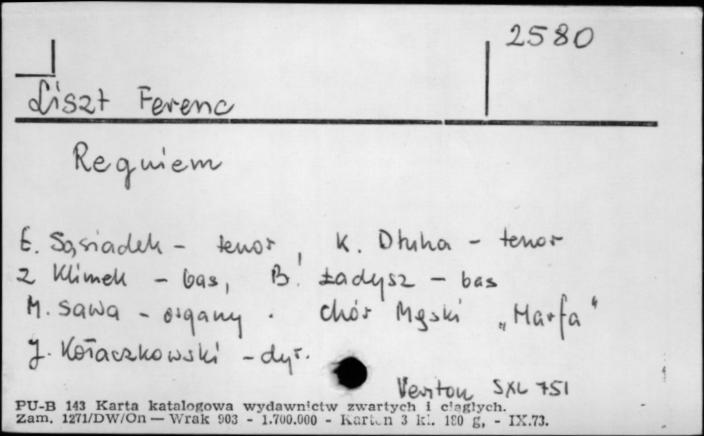 2580
Liszt Ferenc
Requiem
E. Sąsiadek - tenor, K. Dłuha - tenor
Z Klimek - bas, B. Ładysz - bas
M. Sawa - organy. Chór Męski „Harfa"
J. Kołaczkowski - dyr.
Veriton SXL 751
PU-B 143 Karta katalogowa wydawnictw zwartych i ciągłych.
Zam. 1271/DW/On — Wrak 903 - 1.700.000 - Karton 3 kl. 180 g, - IX.73.